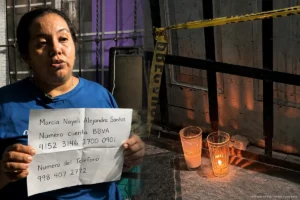 Marcia Nayeli Alejandra Santos
Numero cuenta BBVA
4152 3146 2700 0901
Numero del Telefono
998 407 2772